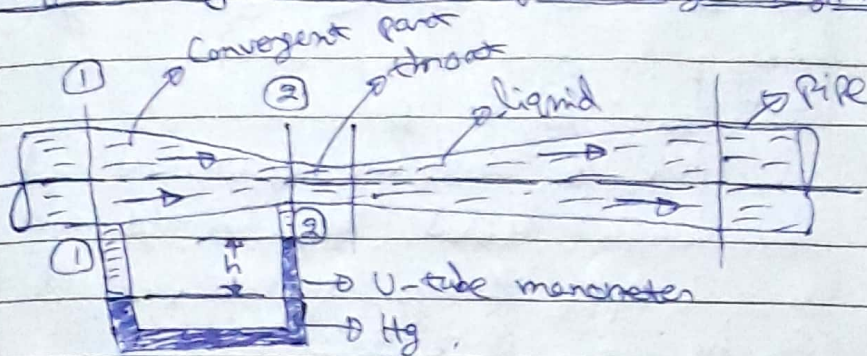 Convergent part
throat
① ② liquid Pipe
① ②
h
U-tube manometer
Hg.